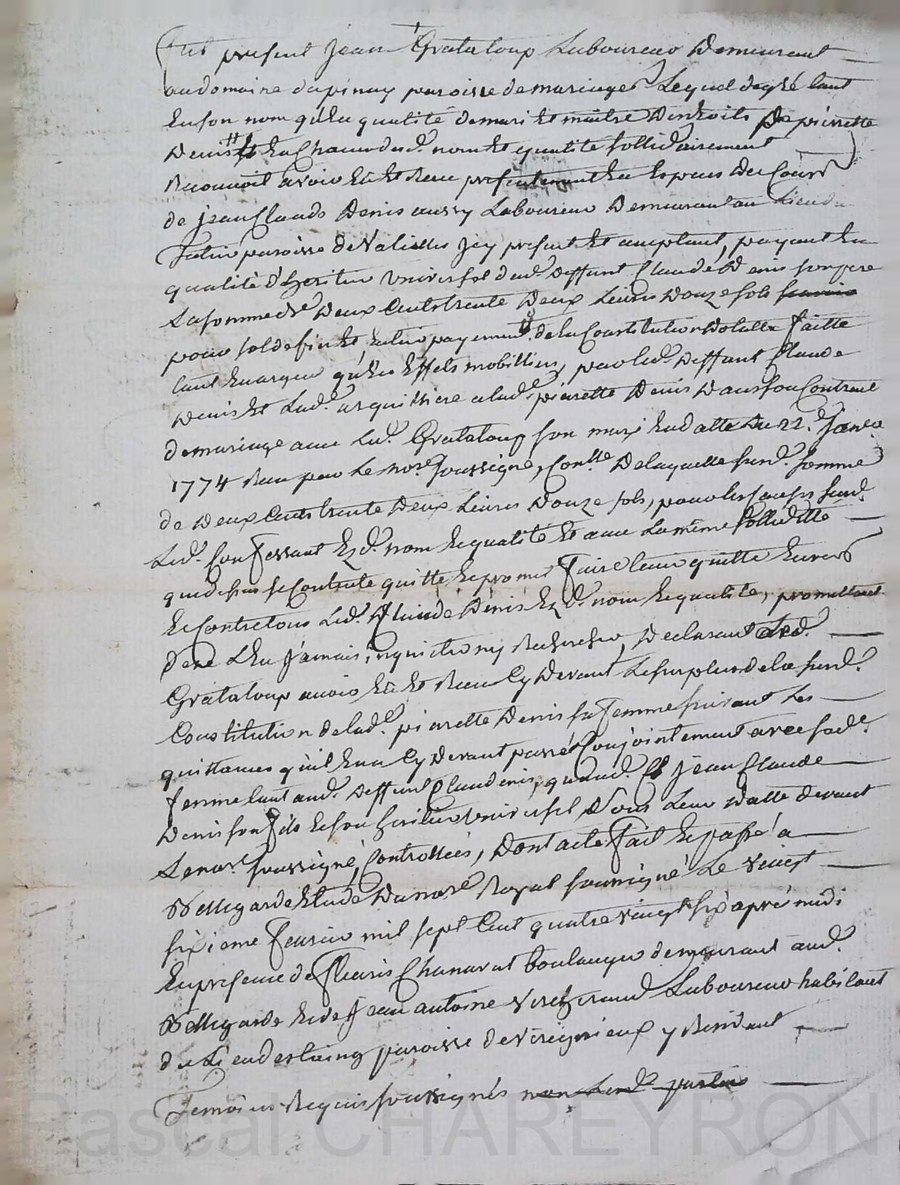 fut présent Jean Grataloup Laboureur Demeurant
au domaine dupinay paroisse de maringes Lequel degré tant
En son nom qu'En qualité demari Et maitre Des droits De pierrette
Denis Et En Chacun desd. noms Et qualité sollidairement
Reconnoit avoir Eû Et Reçu présentement En Espèces De Cours
de jean Claude Denis aussy Laboureur Demeurant au Lieu du
paroisse de Valeilles Icy présent Et acceptant, payant En
qualité d'heritier universel dud. Deffunt Claude Denis son père
La somme de Deux Cents trente Deux Livres Douze sols
pour solde fin Et Entier payement de la Constitution Dotalle faitte
tant En argent qu'En Effets mobilliers, par led. Deffunt Claude
Denis Et Lad. arquilliere a lad. pierrette Denis Dans son Contract
de mariage avec Led. Grataloup son mari En datte Du 22.e Janv.er
1774 Reçu par Le no.re soussigné, Con.llé De laquelle susd. somme
de Deux Cents trente Deux Livres Douze sols, pour les Causes susd.
Led. Confessant Ezd. nom Et qualité Et avec La même sollidité
que dessus se Contente quitte Et promet faire tenir quitte Envers
Et Contre tous Led. Claude Denis Ezd. nom Et qualité, promettant
d'ere L'En Jamais, inquietter ny Rechercher, Declarant Led.
Grataloup avoir Eû Et Reçu Cy Devant Le surplus de la susd.
Constitution de lad. pierrette Denis sa femme suivant Les
quittances qu'il En a Cy Devant passées Conjointement avec sad.
femme tant aud. Deffunt Claude Denis, qu'aud. jean Claude
Denis son fils Et son héritier universel, sous Leur Datte devant
Le no.re soussigné, Controllées, Dont acte fait Et passé a
Bellegarde Etude Du no.re Royal soussigné Le vingt
sixieme feurier mil sept Cent quatre vingt six après midi
En présence de fleuris Chanavat boulanger demeurant aud.
Bellegarde Et de Jean antoine Laboureur habitant
du Lieu paroisse de Viregnieux y Résidant
Témoins Requis soussignés non Lesd. parties
Pascal CHAREYRON